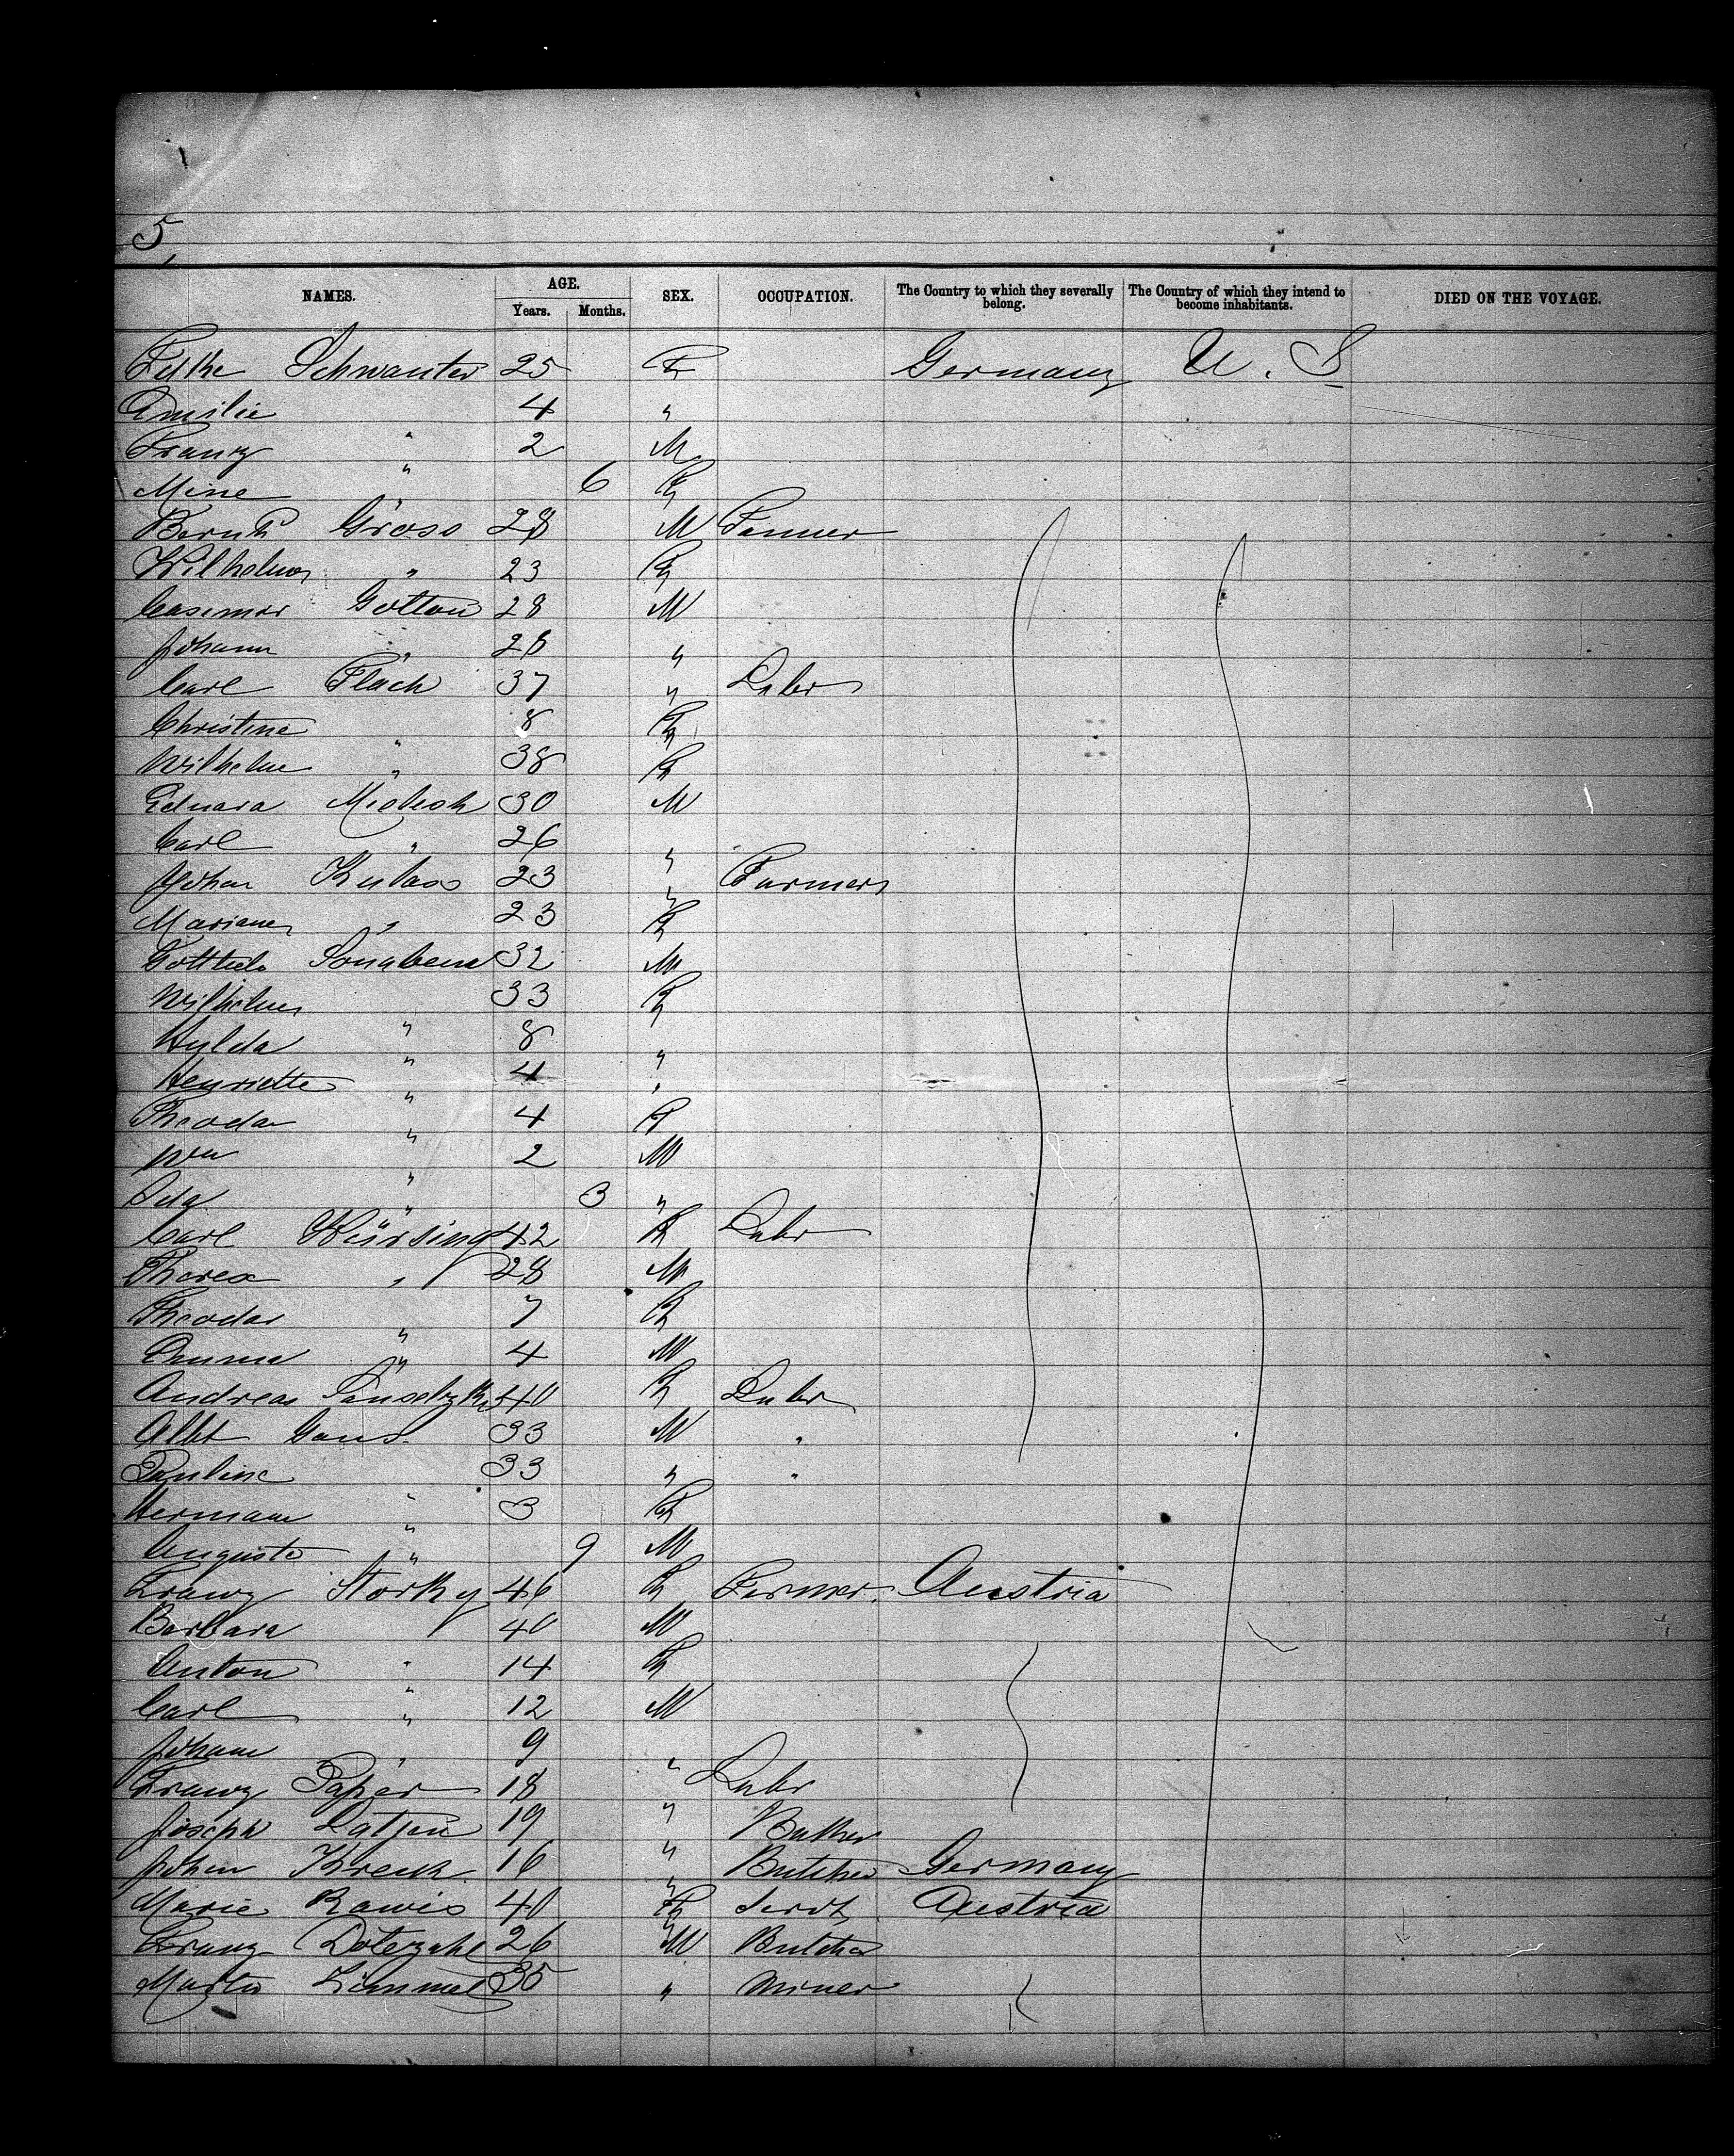 5,
NAMES. AGE. Years. Months. SEX. OCCUPATION. The Country to which they severally belong. The Country of which they intend to become inhabitants. DIED ON THE VOYAGE.
Schwanter 25 F Germany U. S
Emilie 4 "
Franz " 2 M
Mine " 6 F
Bernh Gross 28 M Farmer
Wilhelm " 23 F
Casimir Gottau 28 M
Johann " 28 "
Carl Flach 37 " Labr
Christine 8 F
Wilhelm " 38 F
Eduard 30 M
Carl " 26 "
Johan Kulass 23 " Farmer
Mariane " 23 F
Gottlieb 32 M
Wilhelm 33 F
Hulda " 8 "
Henriette " 4 "
Theodor " 4 F
Wm " 2 M
Ida " 3 "
Carl 42 F Labr
Theres " 28 M
Theodor 7 F
Emma " 4 M
Andreas 40 F Labr
Albt Gans 33 M "
Pauline 33 " "
Hermann " 3 F
Auguste " 9 M
Franz Storky 46 F Farmer. Austria
Barbara 40 M
Anton " 14 F
Carl " 12 M
Johann " 9 "
Franz Paper 18 " Labr
Joseph Latzen 19 "
Johan Kreck 16 " Butcher Germany
Marie Rawis 40 F Servt Austria
Franz 26 M Butcher
Martin Zimmel 35 " Miner